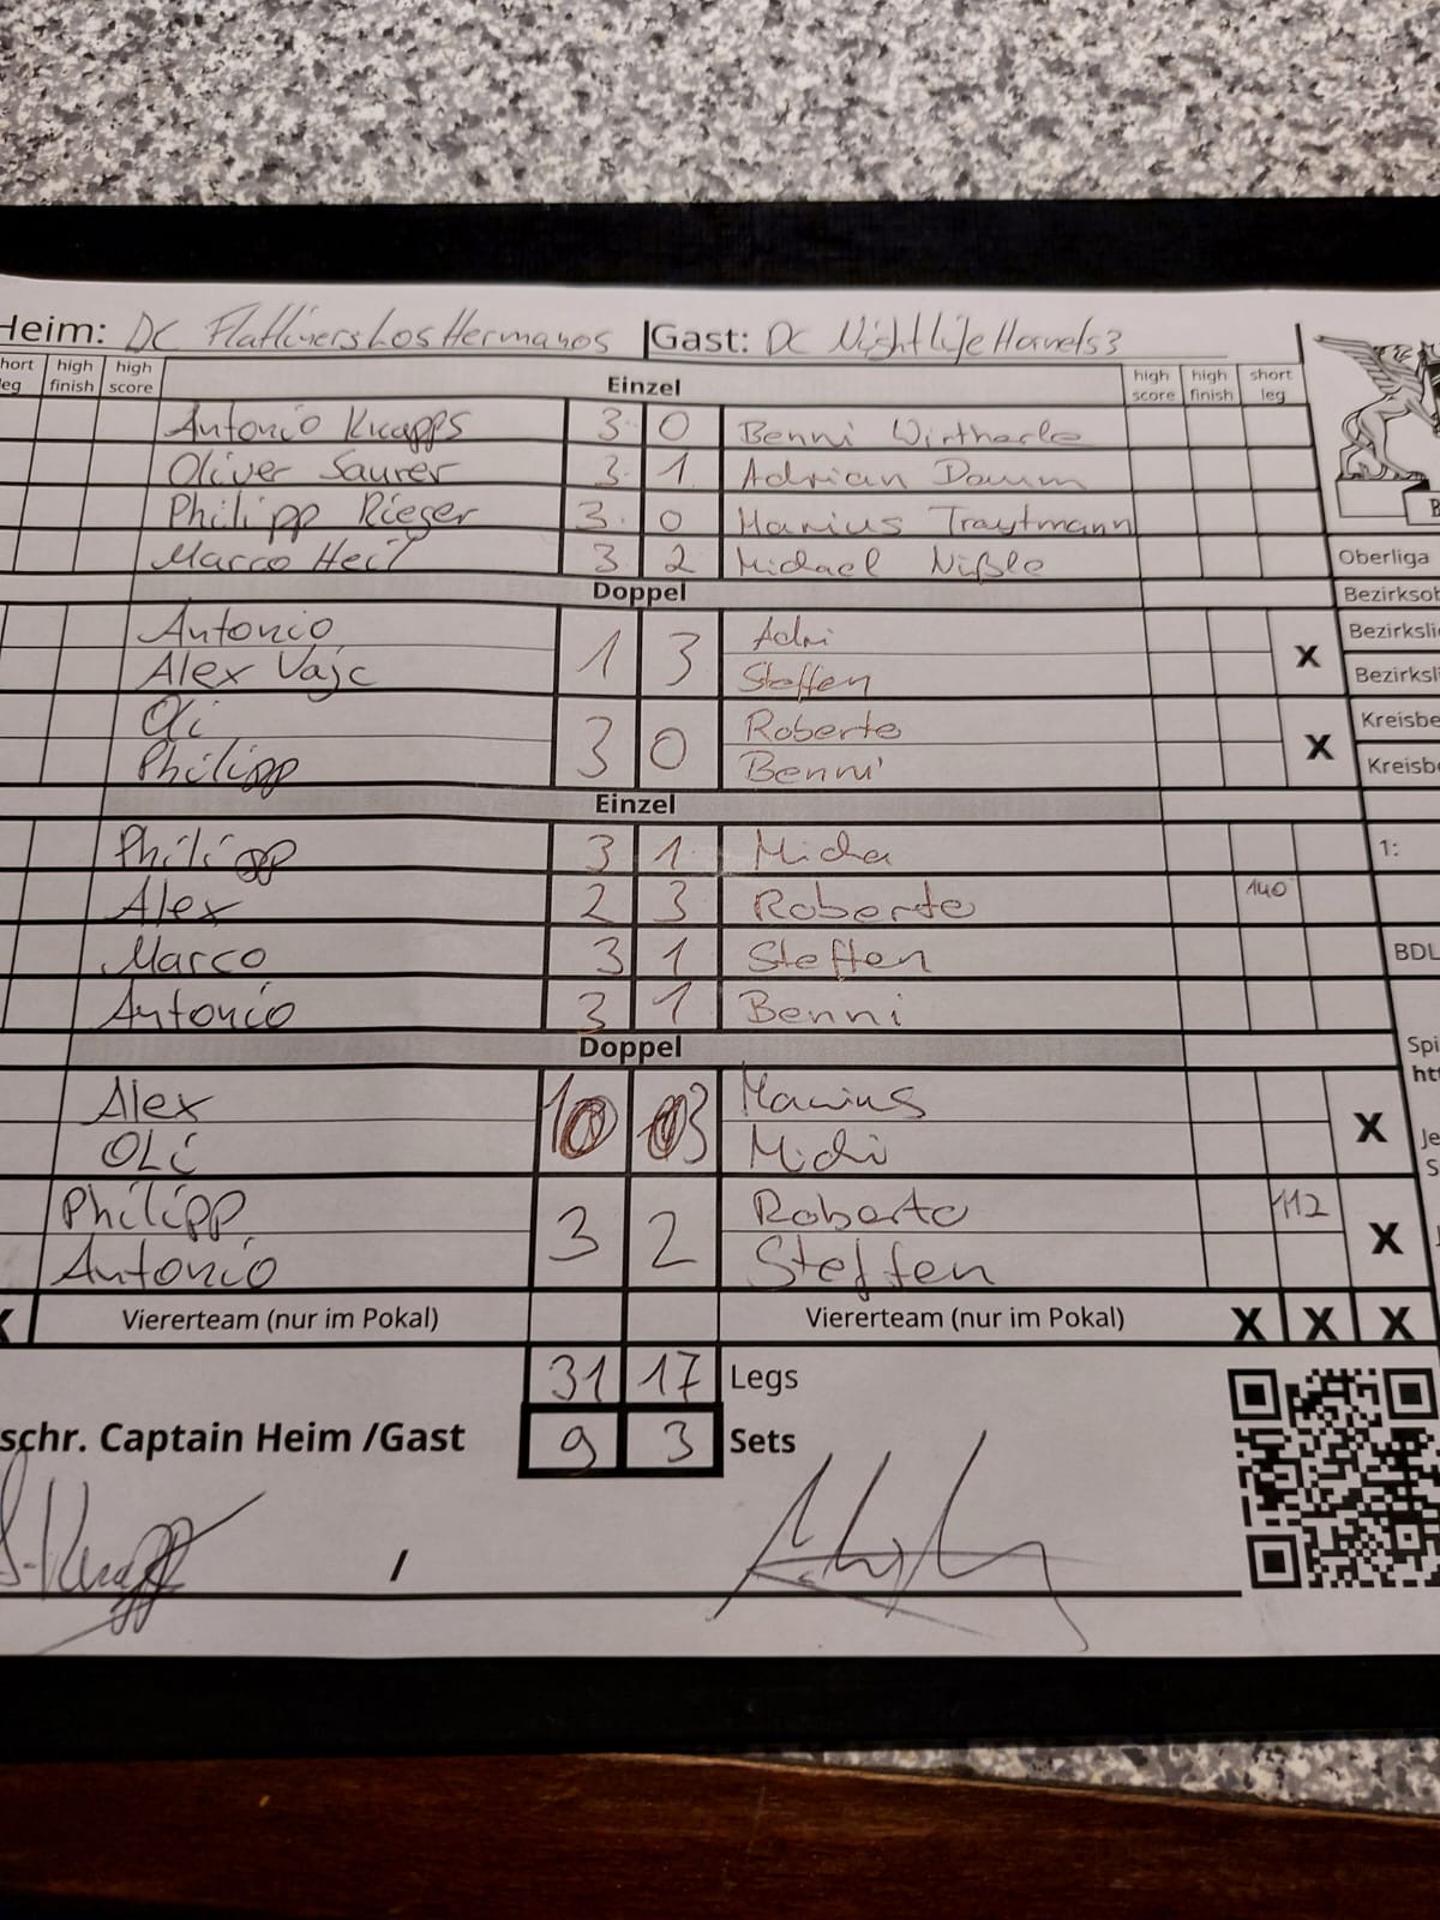 Heim: DC Flatliners Los Hermanos Gast: DC Nightlife Hornets 3
short leg high finish high score Einzel high score high finish short leg
Antonio Knapps 3 0 Benni
Oliver Saurer 3 1 Adrian Daum
Philipp Rieger 3 0 Marius Trautmann
Marco Heil 3 2 Michael Nißle
Oberliga
Doppel
Antonio 1 3 Adri
Alex Vajc Steffen
X
Oli 3 0 Roberto
Philipp Benni
X
Einzel
Philipp 3 1 Micha
1:
Alex 2 3 Roberto 140
Marco 3 1 Steffen
BDL
Antonio 3 1 Benni
Doppel
Alex 1 3 Marius
OLi Michi
X
Philipp 3 2 Roberto 112
Antonio Steffen
X
X Viererteam (nur im Pokal) Viererteam (nur im Pokal) X X X
31 17 Legs
schr. Captain Heim /Gast 9 3 Sets
/